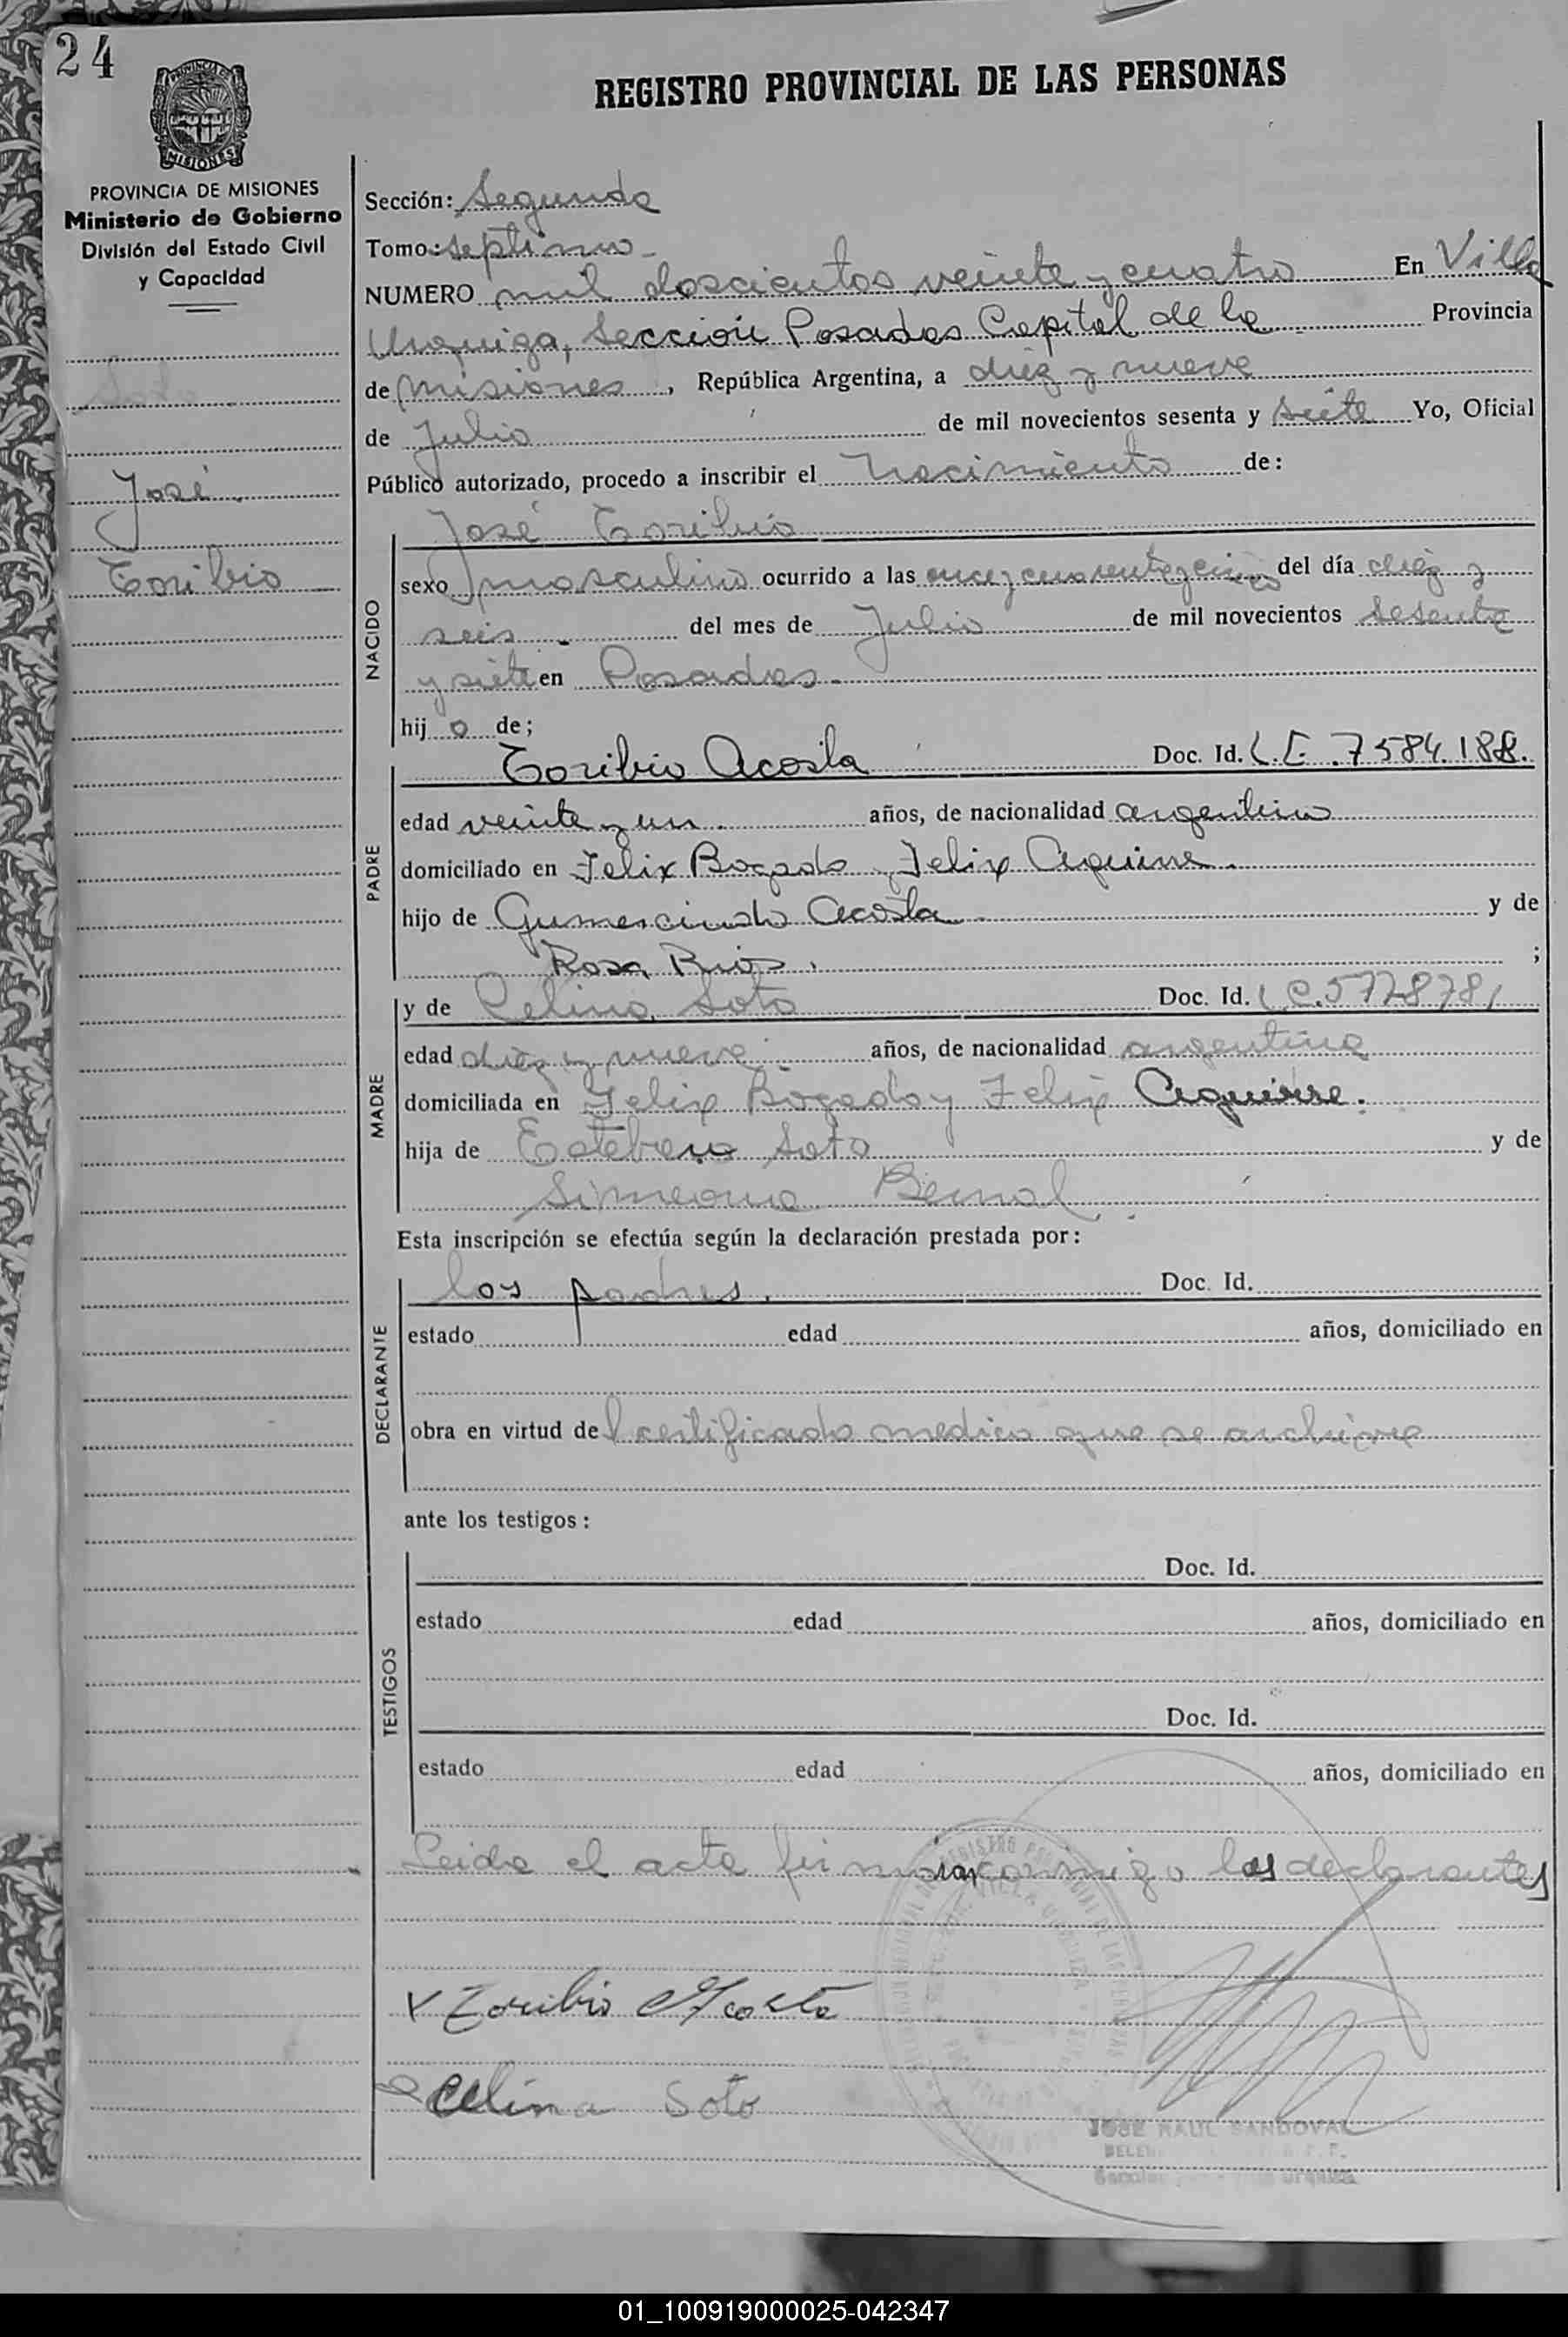 24
REGISTRO PROVINCIAL DE LAS PERSONAS
PROVINCIA DE MISIONES
Ministerio de Gobierno
División del Estado Civil
y Capacidad
Soto
José
Toribio
Sección: Segunda
Tomo: septimo
NUMERO mil doscientos veinte y cuatro En Villa
Urquiza, Sección Posadas Capital de la Provincia
de Misiones, República Argentina, a diez y nueve
de Julio de mil novecientos sesenta y siete Yo, Oficial
Público autorizado, procedo a inscribir el nacimiento de:
José Toribio
NACIDO
sexo masculino ocurrido a las once y cuarenta y cinco del día diez y
seis del mes de Julio de mil novecientos sesenta
y siete en Posadas.
hijo de;
PADRE
Toribio Acosta Doc. Id. L.E. 7584.188.
edad veinte y un años, de nacionalidad argentino
domiciliado en Felix Bogado y Felix Aguirre.
hijo de Gumercindo Acosta y de
Rosa Rios. ;
MADRE
y de Celina Soto Doc. Id. L.C.5778781
edad diez y nueve años, de nacionalidad argentina
domiciliada en Felix Bogado y Felix Aguirre.
hija de Esteban Soto y de
Simeona Bernal
Esta inscripción se efectúa según la declaración prestada por:
DECLARANTE
los padres. Doc. Id.
estado edad años, domiciliado en
obra en virtud del certificado medico que se archiva
ante los testigos:
TESTIGOS
Doc. Id.
estado edad años, domiciliado en
Doc. Id.
estado edad años, domiciliado en
Leida el acta firman conmigo los declarantes
Toribio Acosta
Celina Soto
JOSE RAUL SANDOVAL
01_100919000025-042347